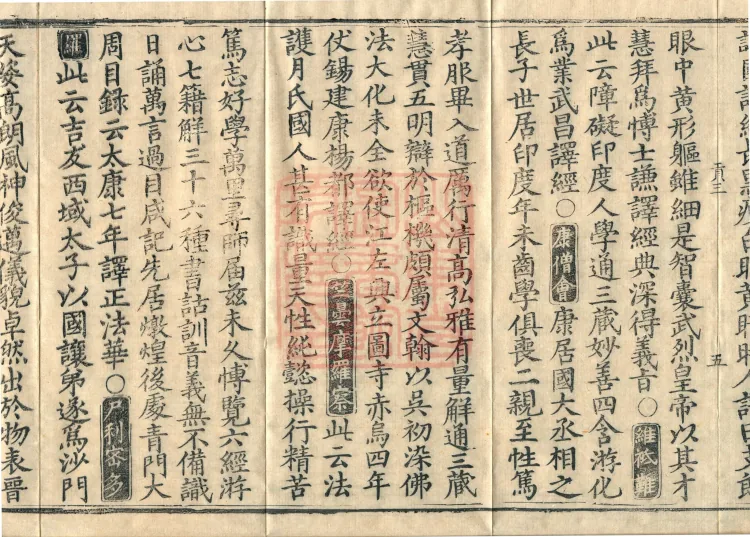 貢三
五
眼中黄形軀雖細是智囊武烈皇帝以其才
慧拜爲博士謙譯經典深得義旨○維祇難
此云障礙印度人學通三藏妙善四含游化
爲業武昌譯經○康僧會康居國大丞相之
長子世居印度年未齒學俱喪二親至性篤
孝服畢入道厲行清高弘雅有量解通三藏
慧貫五明辯於樞機頗屬文翰以吳初染佛
法大化未全欲使江左興立圖寺赤烏四年
仗錫建康楊都譯經○竺曇摩羅察此云法
護月氏國人甚有識量天性純懿操行精苦
篤志好學萬里尋師届兹未久博覽六經游
心七籍解三十六種書詁訓音義無不備識
日誦萬言過目咸記先居燉煌後處青門大
周目録云太康七年譯正法華○尸利密多
羅此云吉友西域太子以國讓弟遂爲沙門
天姿髙朗風神俊邁儀貌卓然出於物表晉